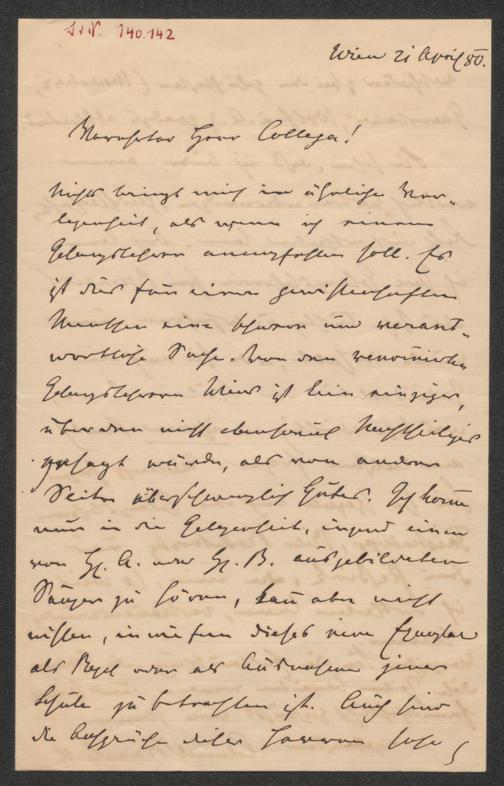 I. N. 140.142
Wien 21 April 80.
Verehrter Herr Collega!
Nichts bringt mich in ähnliche Ver-
legenheit, als wenn ich einen
Gesangslehrer anempfehlen soll. Es
ist dies für einen gewissenhaften
Menschen eine schwere und verant-
wortliche Sache. Von den renomirten
Gesangslehrern Wiens ist kein einziger,
über den nicht ebensoviel Nachtheiliges
gesagt würde, als von andrer
Seite überschwenglich Gutes. Ich komme
nun in die Gelegenheit, irgend einen
von H. A. oder H. B. ausgebildeten
Sänger zu hören, kann aber nicht
wissen, in wie fern dieses eine Exemplar
als Regel oder als Ausnahme jener
Schule zu betrachten ist. Auch sind
die Ansprüche dieser Herren sehr